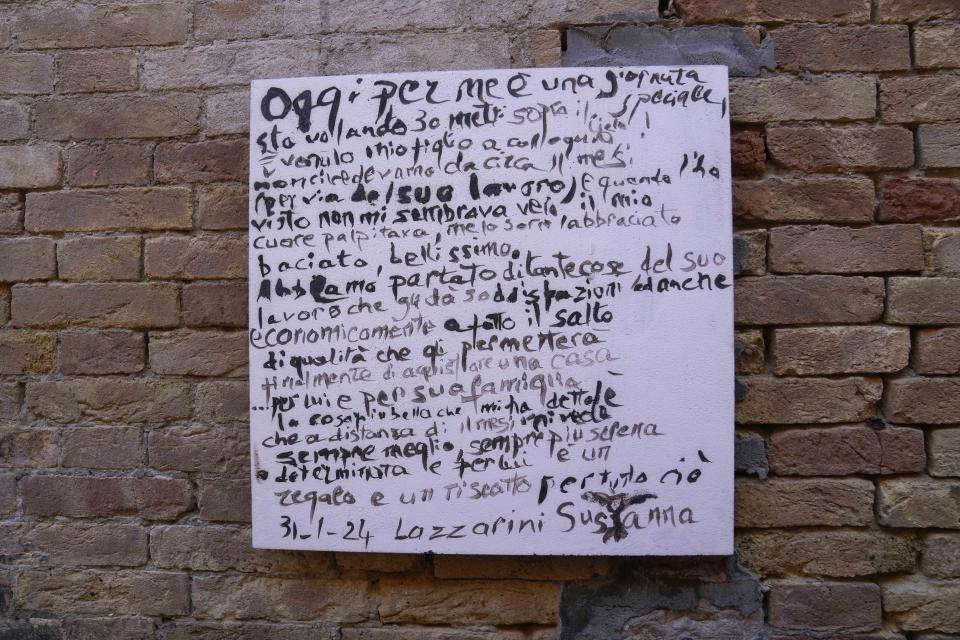 Oggi per me è una giornata
speciale,
sto volando 30 metri sopra il cielo!
È venuto mio figlio a colloquio
non ci vedevamo da circa 11 mesi
(per via del suo lavoro) e quando l'ho
visto non mi sembrava vero il mio
cuore palpitava, me lo sono abbraciato
baciato, bellissimo.
Abbiamo parlato di tante cose del suo
lavoro che gli da soddisfazioni ed anche
economicamente a fatto il salto
di qualità che gli permetterà
finalmente di acquistare una casa
...per lui e per sua famiglia
la cosa più bella che mi ha detto è
che a distanza di 11 mesi mi vede
sempre meglio, sempre più serena
e determinata e per lui è un
regalo e un riscatto per tutto ciò
31-1-24 Lazzarini Susanna